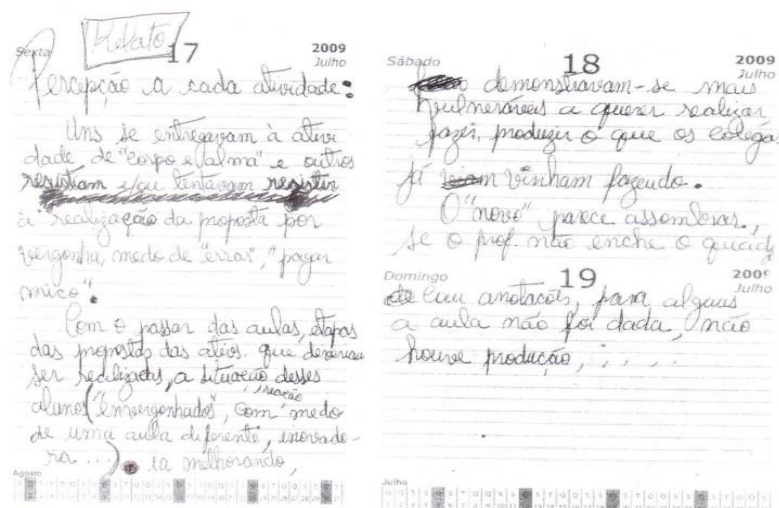 Sexta
Relato
17
2009
Julho
Percepção a cada atividade:
Uns se entregavam à ativi
dade de "corpo e alma" e outros
resistiam e/ou tentavam resistir
à realização da proposta por
vergonha, medo de "errar", "pagar
mico".
Com o passar das aulas, etapas
das propostas das ativs. que deveriam
ser realizadas, a situação desses
reação
alunos ("envergonhados", com medo
de uma aula diferente, inovado-
ra ...) ia melhorando,
Agosto
Sábado
18
2009
Julho
demonstravam-se mais
vulneráveis a querer realizar,
fazer, produzir o que os colegas
já vinham fazendo.
O "novo" parece assombrar,
se o prof. não enche o quad
Domingo
19
2009
Julho
anotações, para alguns
a aula não foi dada, não
houve produção, ; . . .
Julho